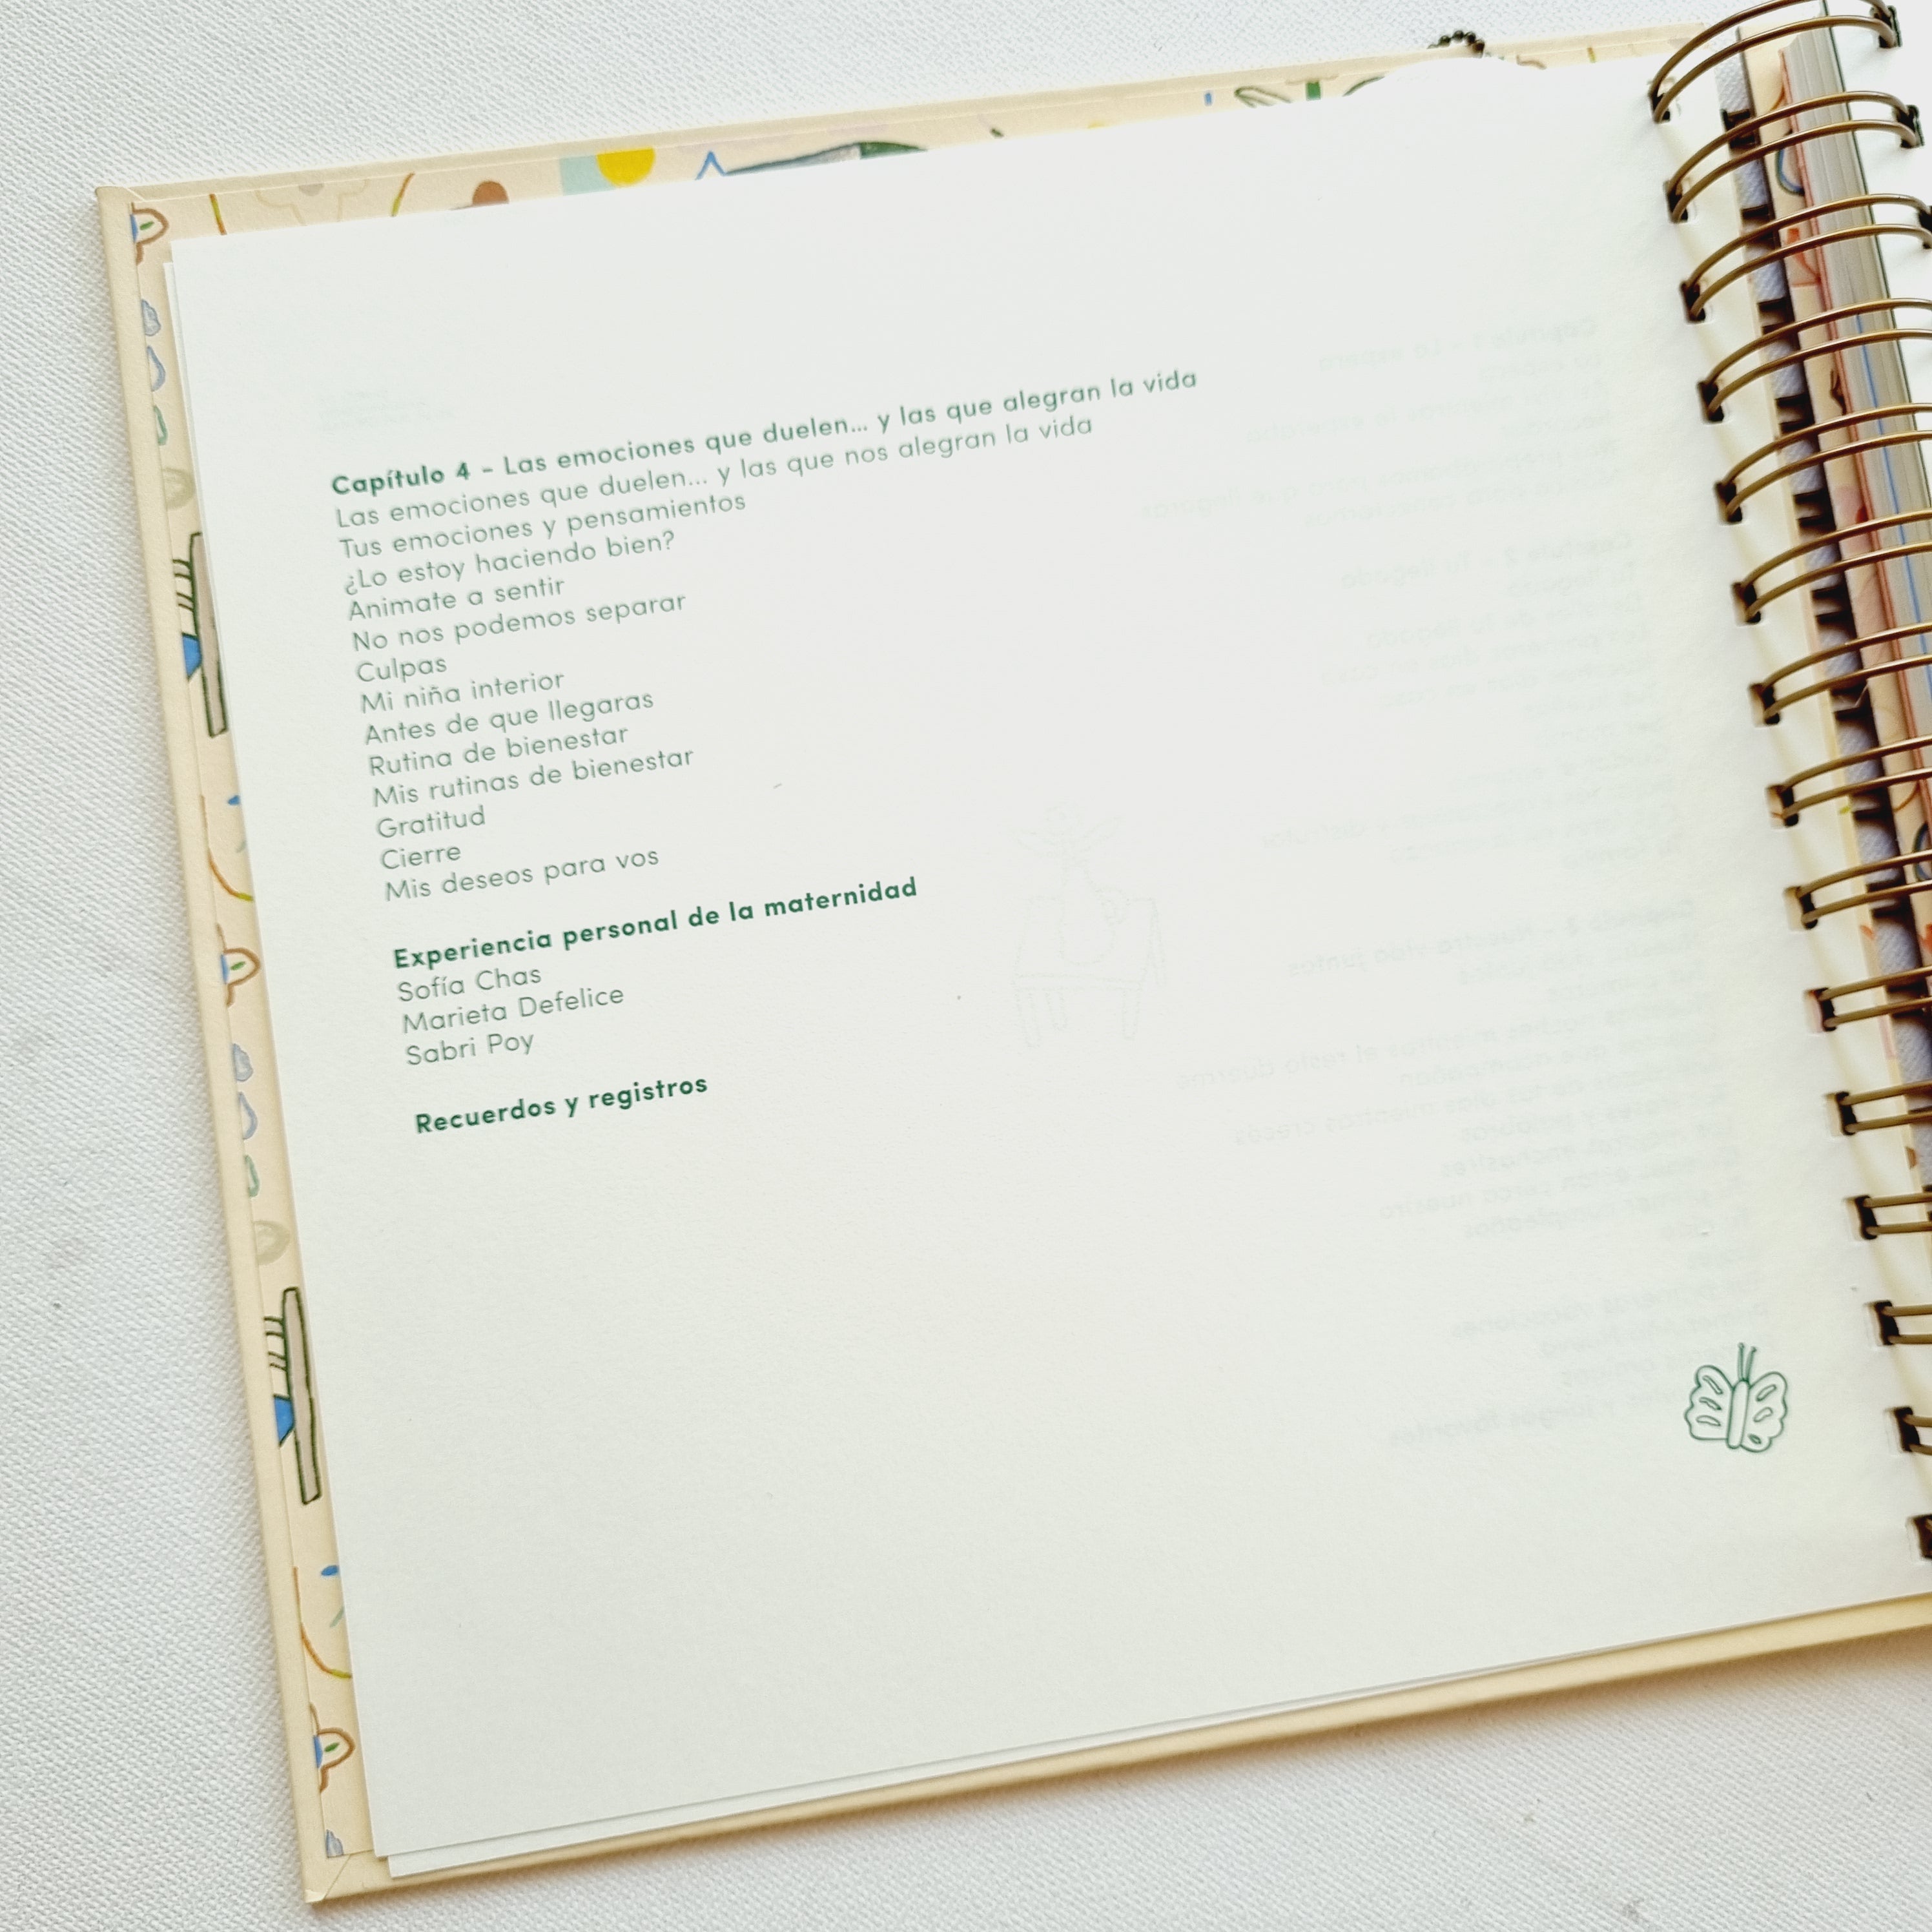 Capítulo 4 - Las emociones que duelen... y las que alegran la vida
Las emociones que duelen... y las que nos alegran la vida
Tus emociones y pensamientos
¿Lo estoy haciendo bien?
Animate a sentir
No nos podemos separar
Culpas
Mi niña interior
Antes de que llegaras
Rutina de bienestar
Mis rutinas de bienestar
Gratitud
Cierre
Mis deseos para vos
Experiencia personal de la maternidad
Sofía Chas
Marieta Defelice
Sabri Poy
Recuerdos y registros